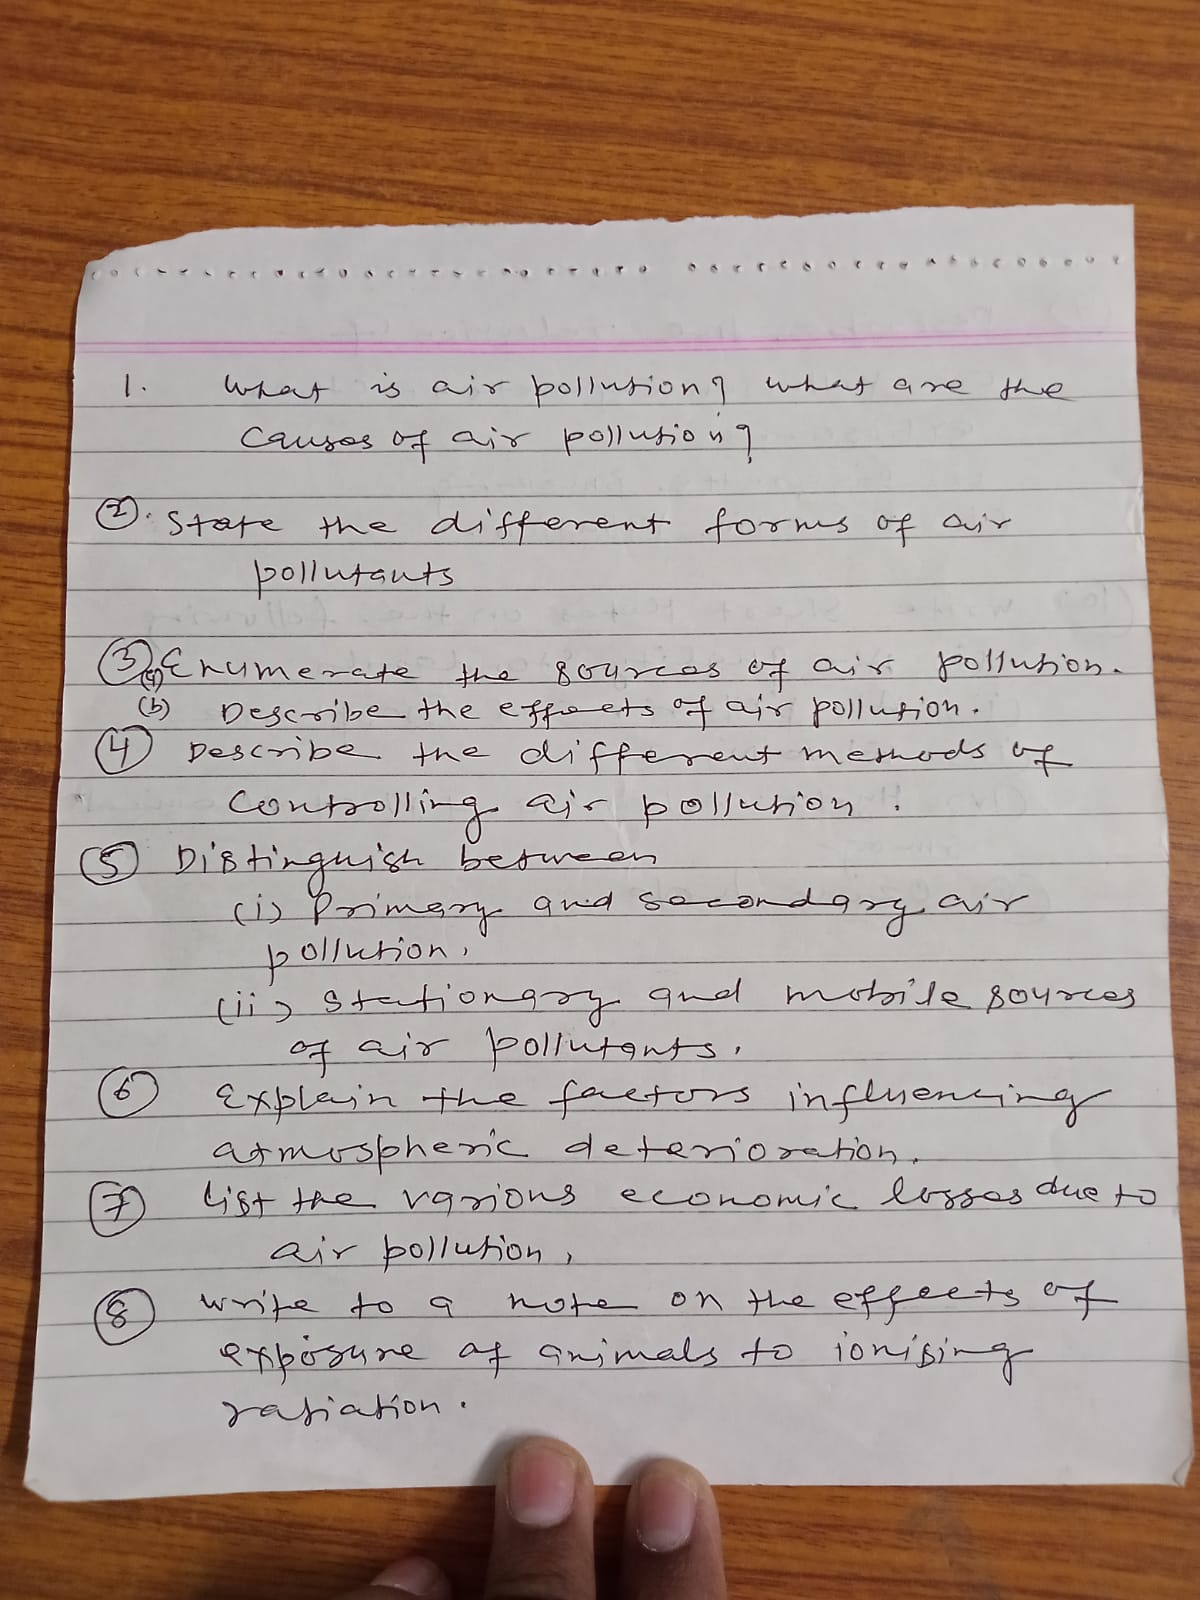 1. What is air pollution? what are the
causes of air pollution?
2. State the different forms of air
pollutants
3 (a) Enumerate the sources of air pollution.
(b) Describe the effects of air pollution.
4 Describe the different methods of
controlling air pollution.
5 Distinguish between
(i) Primary and secondary air
pollution.
(ii) Stationary and mobile sources
of air pollutants.
6 Explain the factors influencing
atmospheric deterioration.
7 List the various economic losses due to
air pollution,
8 write to a note on the effects of
exposure of animals to ionising
ratiation.